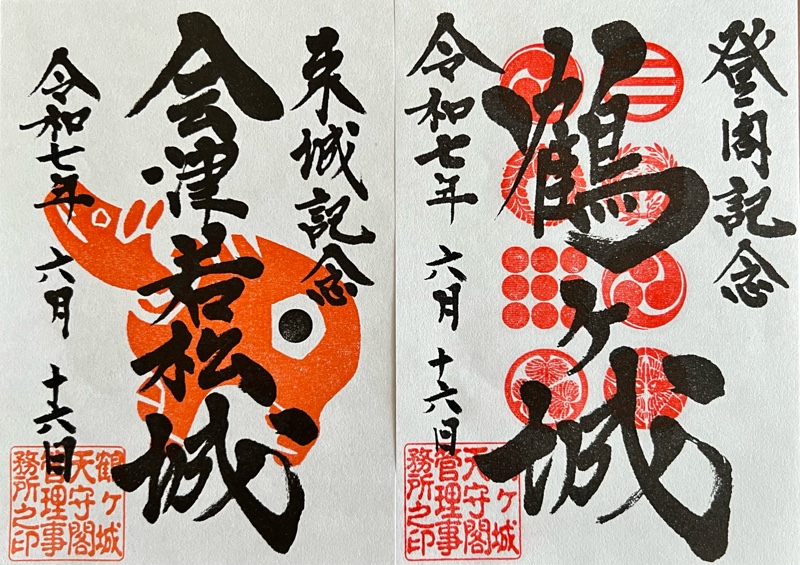 登閣記念
鶴ヶ城
令和七年 六月 十六日
鶴ヶ城
天守閣
管理事
務所之印
来城記念
会津若松城
令和七年 六月 十六日
鶴ヶ城
天守閣
管理事
務所之印